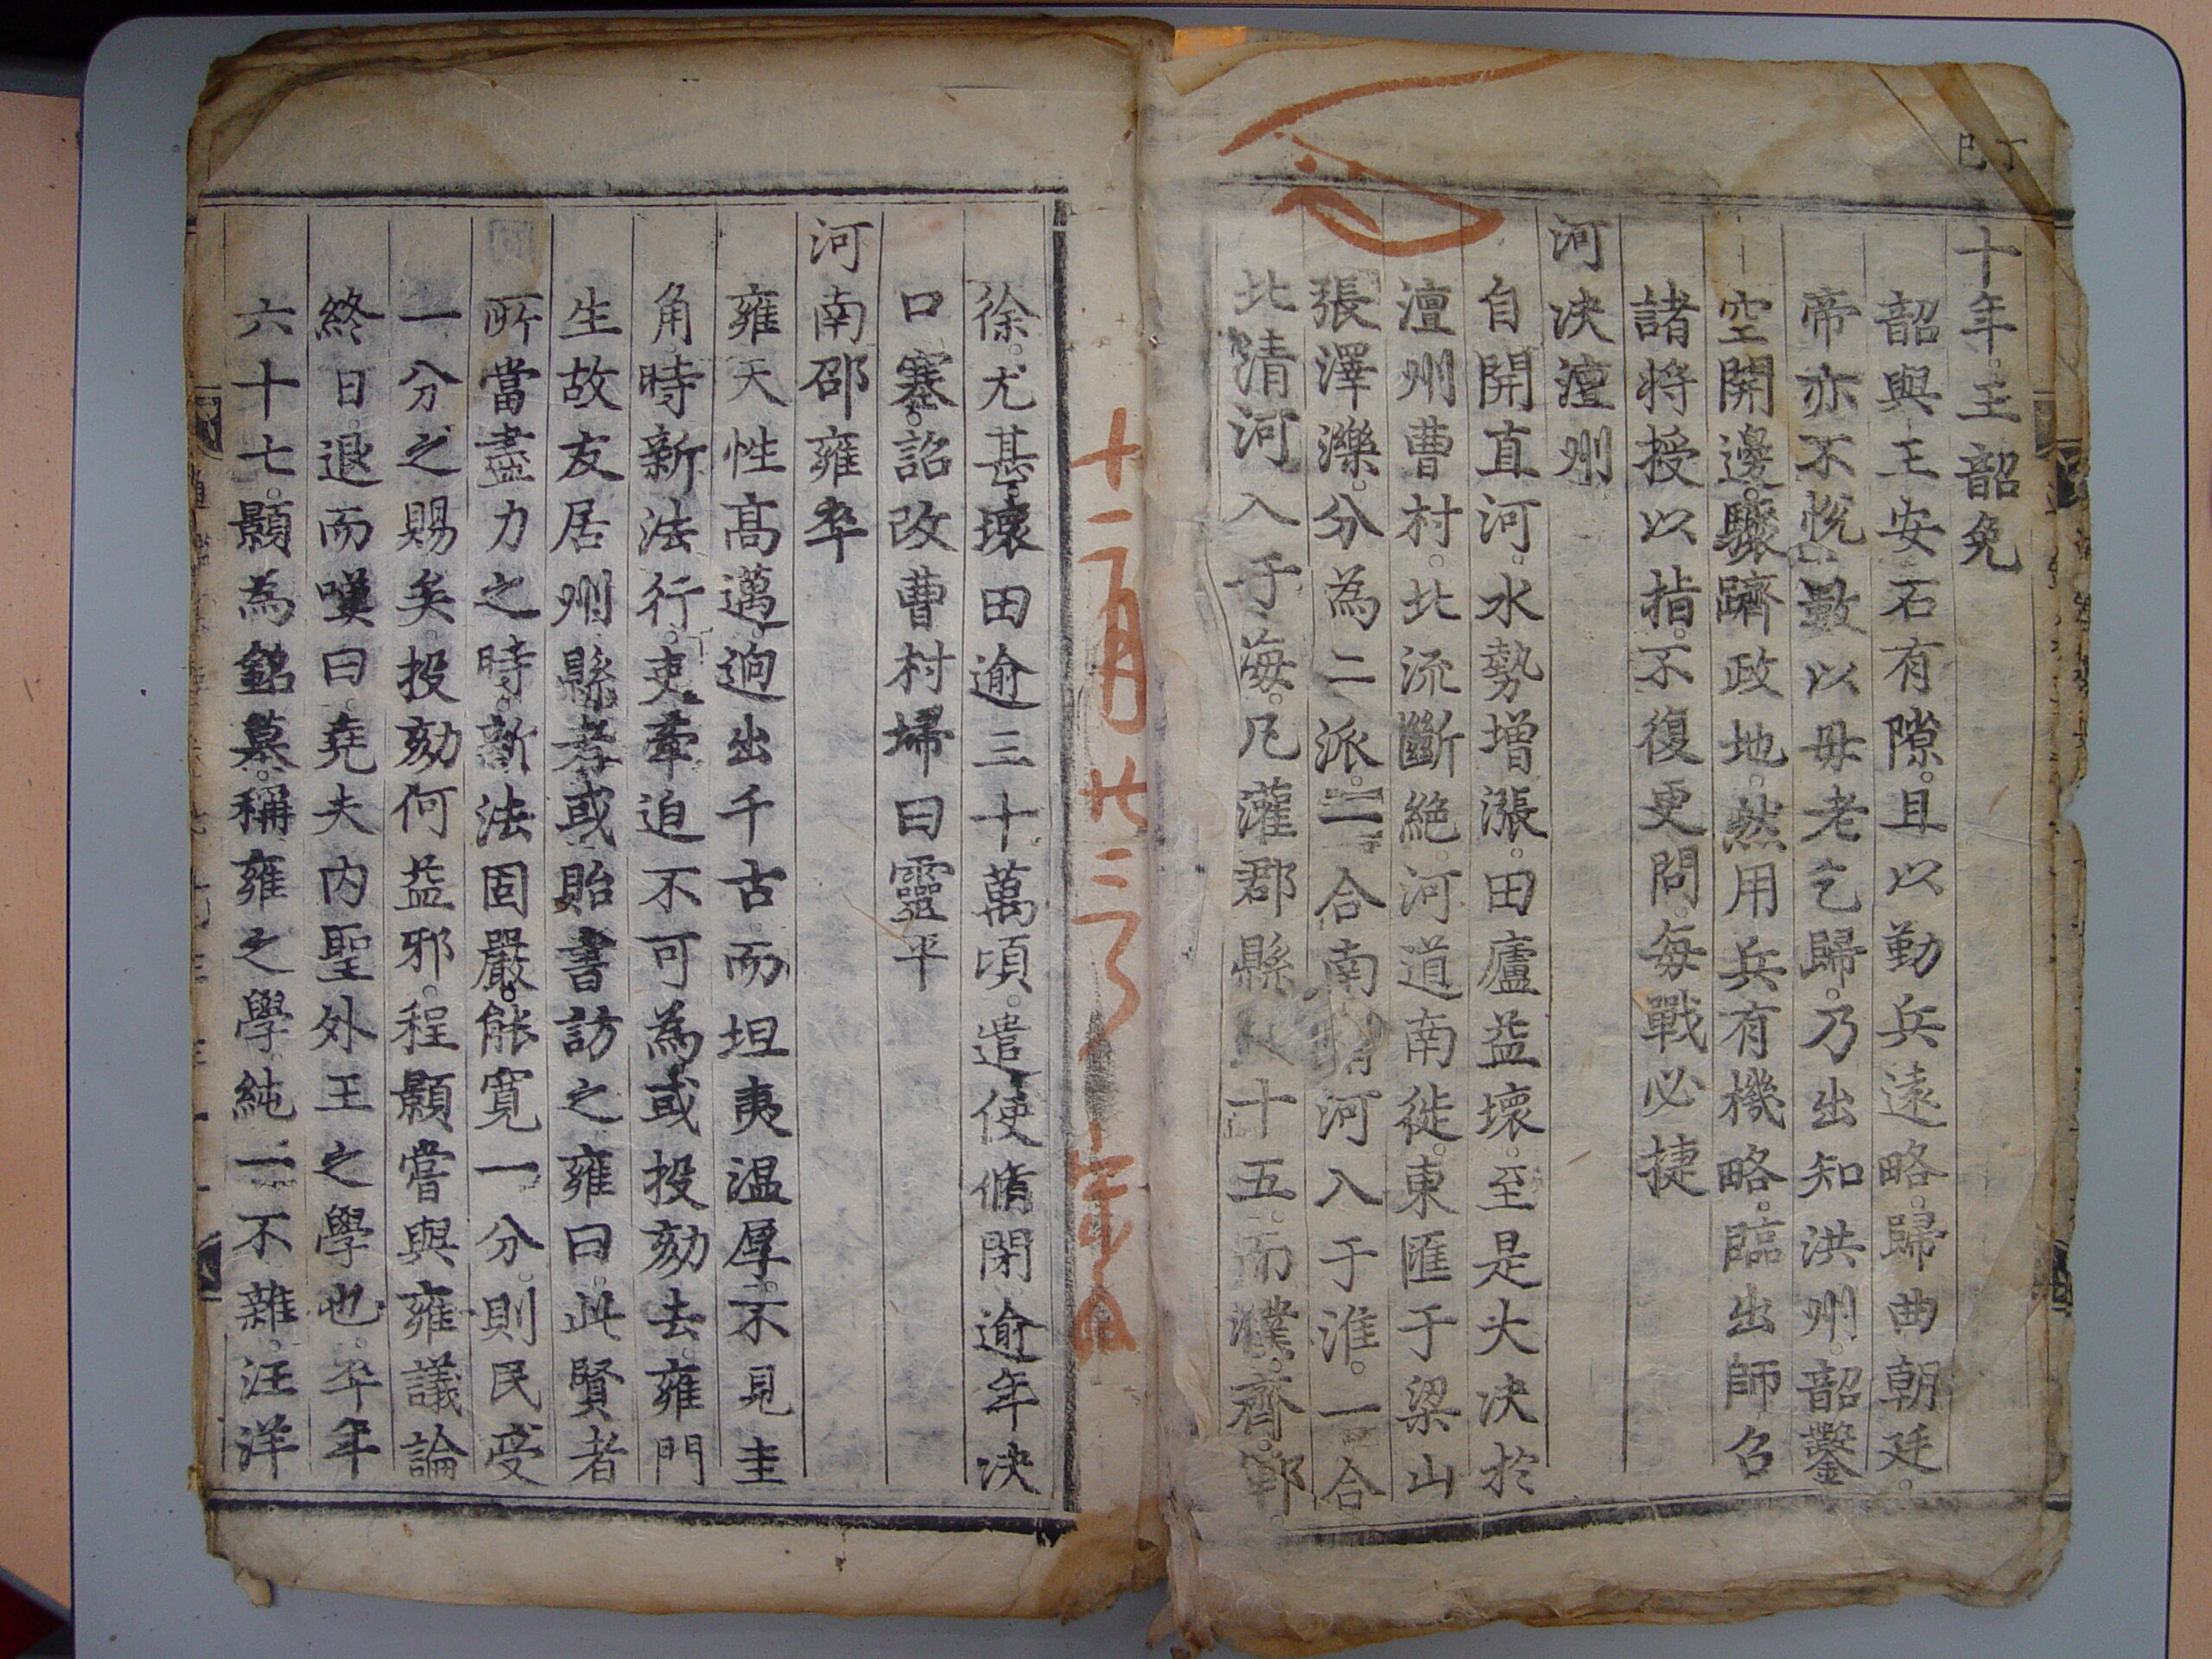 丁巳
十年。王韶免
韶與王安石有隙。且以勤兵遠略。歸曲朝廷。
帝亦不悅。數以毋老乞歸。乃出知洪州。韶鑿
空開邊。驟躋政地。然用兵有機略。臨出師召
諸將授以指。不復更問。每戰必捷
河決澶州
自開直河。水勢增漲。田廬益壞。至是大決於
澶州曹村。北流斷絶。河道南徙。東匯于梁山
張澤濼。分為二派。一合南清河入于淮。一合
北清河入于海。凡灌郡縣十五。而濮。齊。鄆。
徐。尤甚。壞田逾三十萬頃。遣使脩閉。逾年決
口塞。詔改曹村埽曰靈平
河南邵雍卒
雍天性高邁。逈出千古。而坦夷溫厚。不見圭
角。時新法行。吏牽迫不可為。或投劾去。雍門
生故友居州縣者。或貽書訪之。雍曰。此賢者
所當盡力之時。新法固嚴。能寬一分。則民受
一分之賜矣。投劾何益邪。程顥嘗與雍議論
終日。退而嘆曰。堯夫內聖外王之學也。卒年
六十七。顥為銘墓。稱雍之學。純一不雜。汪洋
十二月廿三